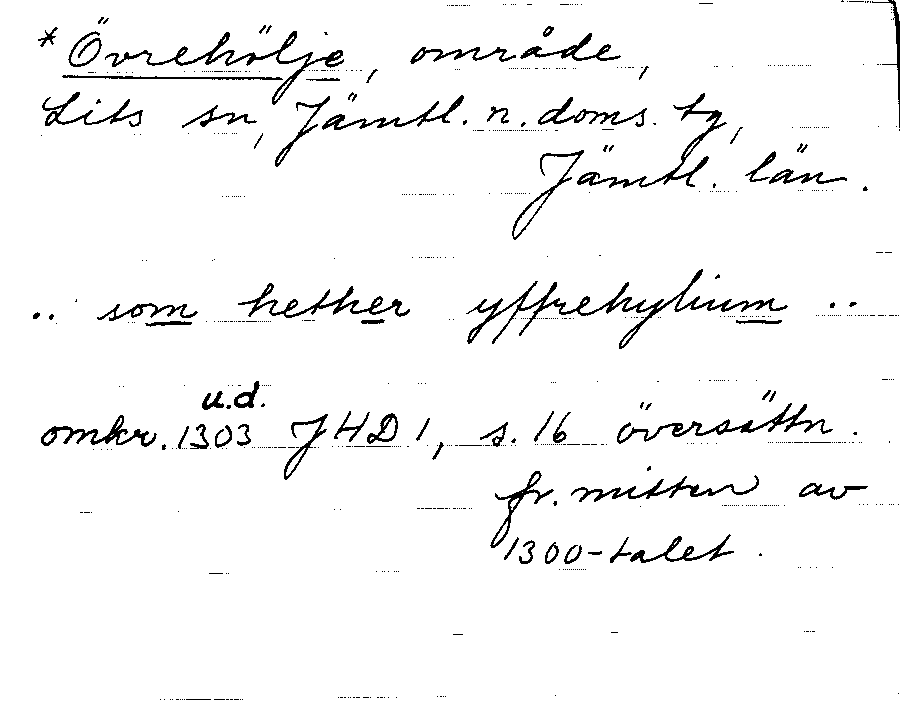 *Övrehölje, område,
Lits sn, Jämtl. n. doms. tg,
Jämtl. län.
.. som hether yffrehylium ..
u.d.
omkr. 1303 JHD 1, s. 16 översättn.
fr. mitten av
1300-talet.